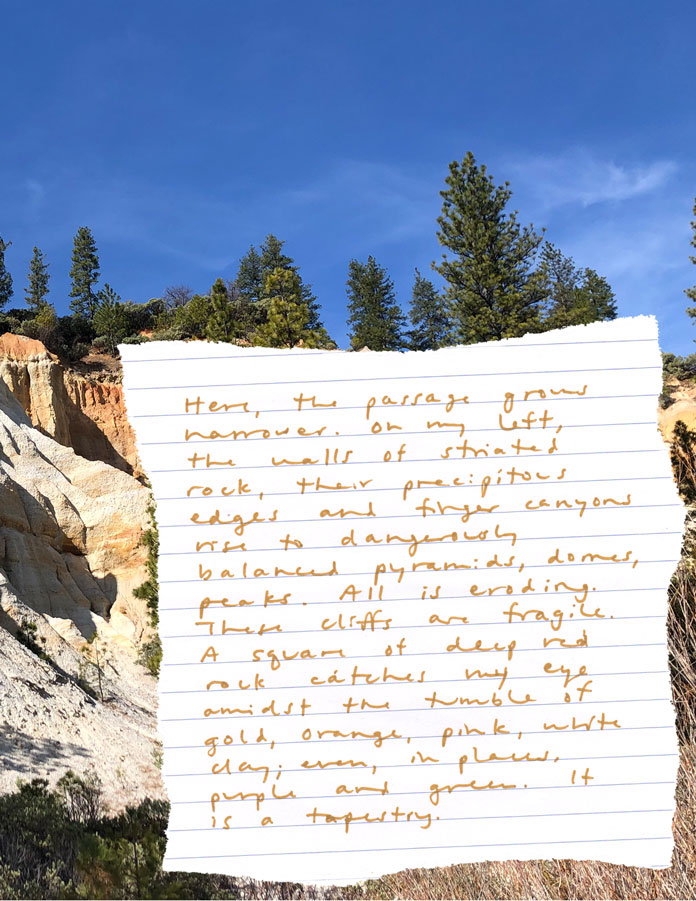 Here, the passage grows
narrower. On my left,
the walls of striated
rock, their precipitous
edges and finger canyons
rise to dangerously
balanced pyramids, domes,
peaks. All is eroding.
These cliffs are fragile.
A square of deep red
rock catches my eye
amidst the tumble of
gold, orange, pink, white
clay; even, in places,
purple and green. It
is a tapestry.